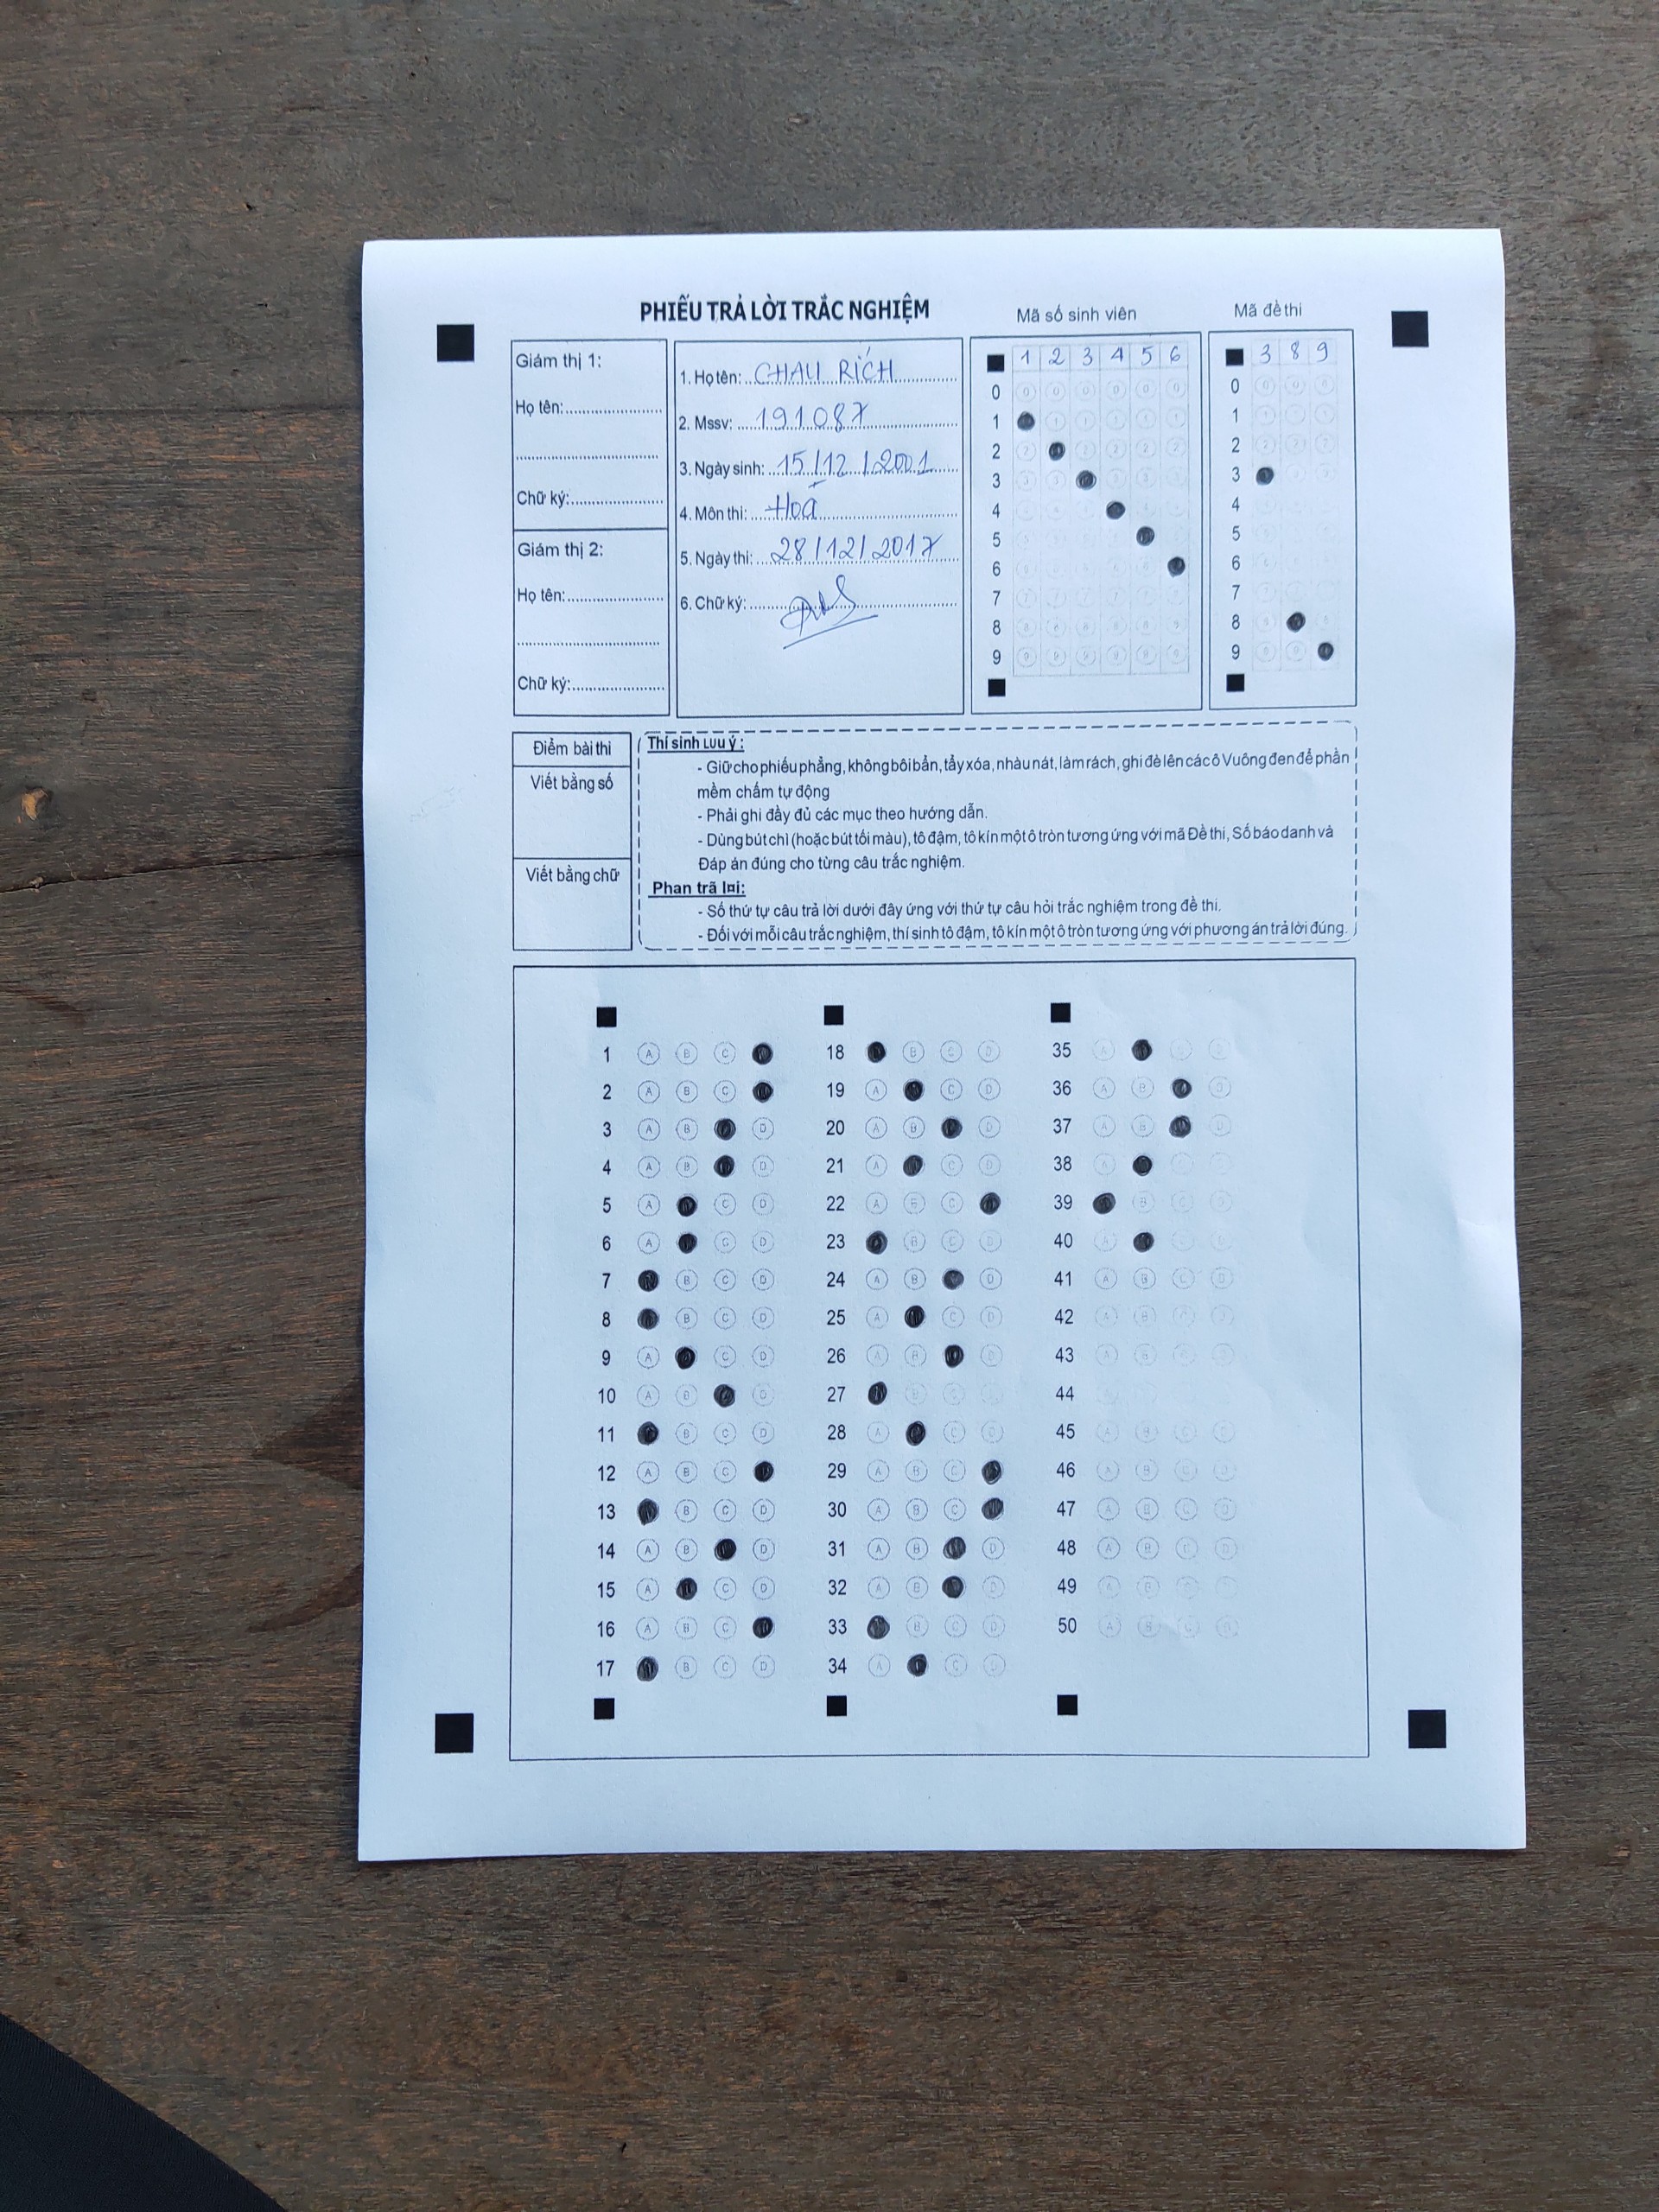 PHIẾU TRẢ LỜI TRẮC NGHIỆM
Mã số sinh viên
Mã đề thi
Giám thị 1:
Họ tên:
Chữ ký:
Giám thị 2:
Họ tên:
Chữ ký:
1. Họ tên: CHAU RÍCH
2. Mssv: 191087
3. Ngày sinh: 15/12/2001
4. Môn thi: Hoá
5. Ngày thi: 28/12/2017
6. Chữ ký:
1 2 3 4 5 6
0
1
2
3
4
5
6
7
8
9
3 8 9
0
1
2
3
4
5
6
7
8
9
Điểm bài thi
Viết bằng số
Viết bằng chữ
Thí sinh Lưu ý :
- Giữ cho phiếu phẳng, không bôi bẩn, tẩy xóa, nhàu nát, làm rách, ghi đè lên các ô Vuông đen để phần
mềm chấm tự động
- Phải ghi đầy đủ các mục theo hướng dẫn.
- Dùng bút chì (hoặc bút tối màu), tô đậm, tô kín một ô tròn tương ứng với mã Đề thi, Số báo danh và
Đáp án đúng cho từng câu trắc nghiệm.
Phan trã lại:
- Số thứ tự câu trả lời dưới đây ứng với thứ tự câu hỏi trắc nghiệm trong đề thi.
- Đối với mỗi câu trắc nghiệm, thí sinh tô đậm, tô kín một ô tròn tương ứng với phương án trả lời đúng.
1 A B C
2 A B C
3 A B D
4 A B D
5 A C D
6 A C D
7 B C D
8 B C D
9 A C D
10 A B D
11 B C D
12 A B C
13 B C D
14 A B D
15 A C D
16 A B C
17 B C D
18 B C D
19 A C D
20 A B D
21 A C D
22 A B C
23 B C D
24 A B D
25 A C D
26 A B D
27 B C
28 A C D
29 A B C
30 A B C
31 A B D
32 A B D
33 B C D
34 A C D
35
36 A B D
37 A B D
38
39 B C D
40
41 A B C D
42 A B C D
43 A B C D
44
45 A B C D
46 A B C D
47 A B C D
48 A B C D
49 A B C
50 A B C D